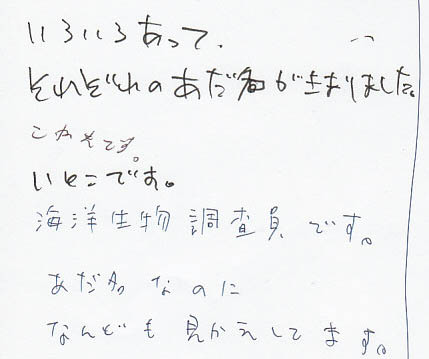 いろいろあって、
それぞれのあだ名が生まりました。
こかそです。
いとこです。
海洋生物調査員です。
あだ名なのに
なんども見かえしてます。